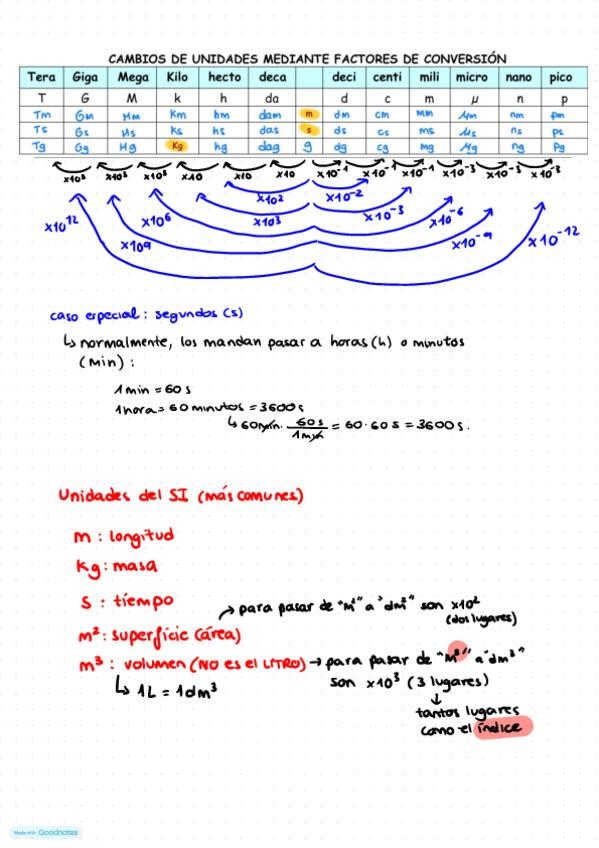 CAMBIOS DE UNIDADES MEDIANTE FACTORES DE CONVERSIÓN
Tera Giga Mega Kilo hecto deca deci centi mili micro nano pico
T G M k h da d c m μ n p
Tm Gm Mm km hm dam m dm cm mm μm nm pm
Ts Gs Ms ks hs das s ds cs ms μs ns ps
Tg Gg Mg Kg hg dag g dg cg mg μg ng pg
x10³ x10³ x10³ x10 x10 x10 x10⁻¹ x10⁻¹ x10⁻¹ x10⁻³ x10⁻³ x10⁻³
x10² x10⁻²
x10¹² x10⁶ x10³ x10⁻³ x10⁻⁶
x10⁹ x10⁻⁹ x10⁻¹²
caso especial: segundos (s)
↳ normalmente, los mandan pasar a horas (h) o minutos
(min):
1 min = 60 s
1 hora = 60 minutos = 3600 s
↳ 60 min · 60 s / 1 min = 60 · 60 s = 3600 s.
Unidades del SI (más comunes)
m : longitud
kg : masa
s : tiempo
→ para pasar de "m²" a "dm²" son x10²
(dos lugares)
m² : superfície (área)
m³ : volumen (NO es el LITRO) → para pasar de "m³" a "dm³"
↳ 1L = 1dm³
son x10³ (3 lugares)
↓
tantos lugares
como el índice
Made with Goodnotes